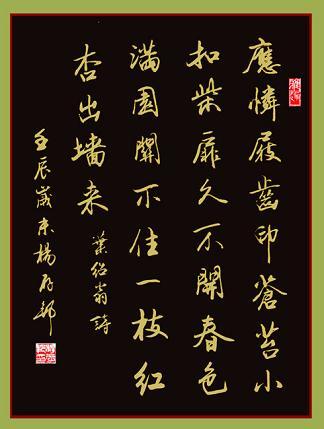 應憐屐齒印蒼苔小
扣柴扉久不開春色
滿園關不住一枝紅
杏出墙来
葉紹翁詩
壬辰歲末楊